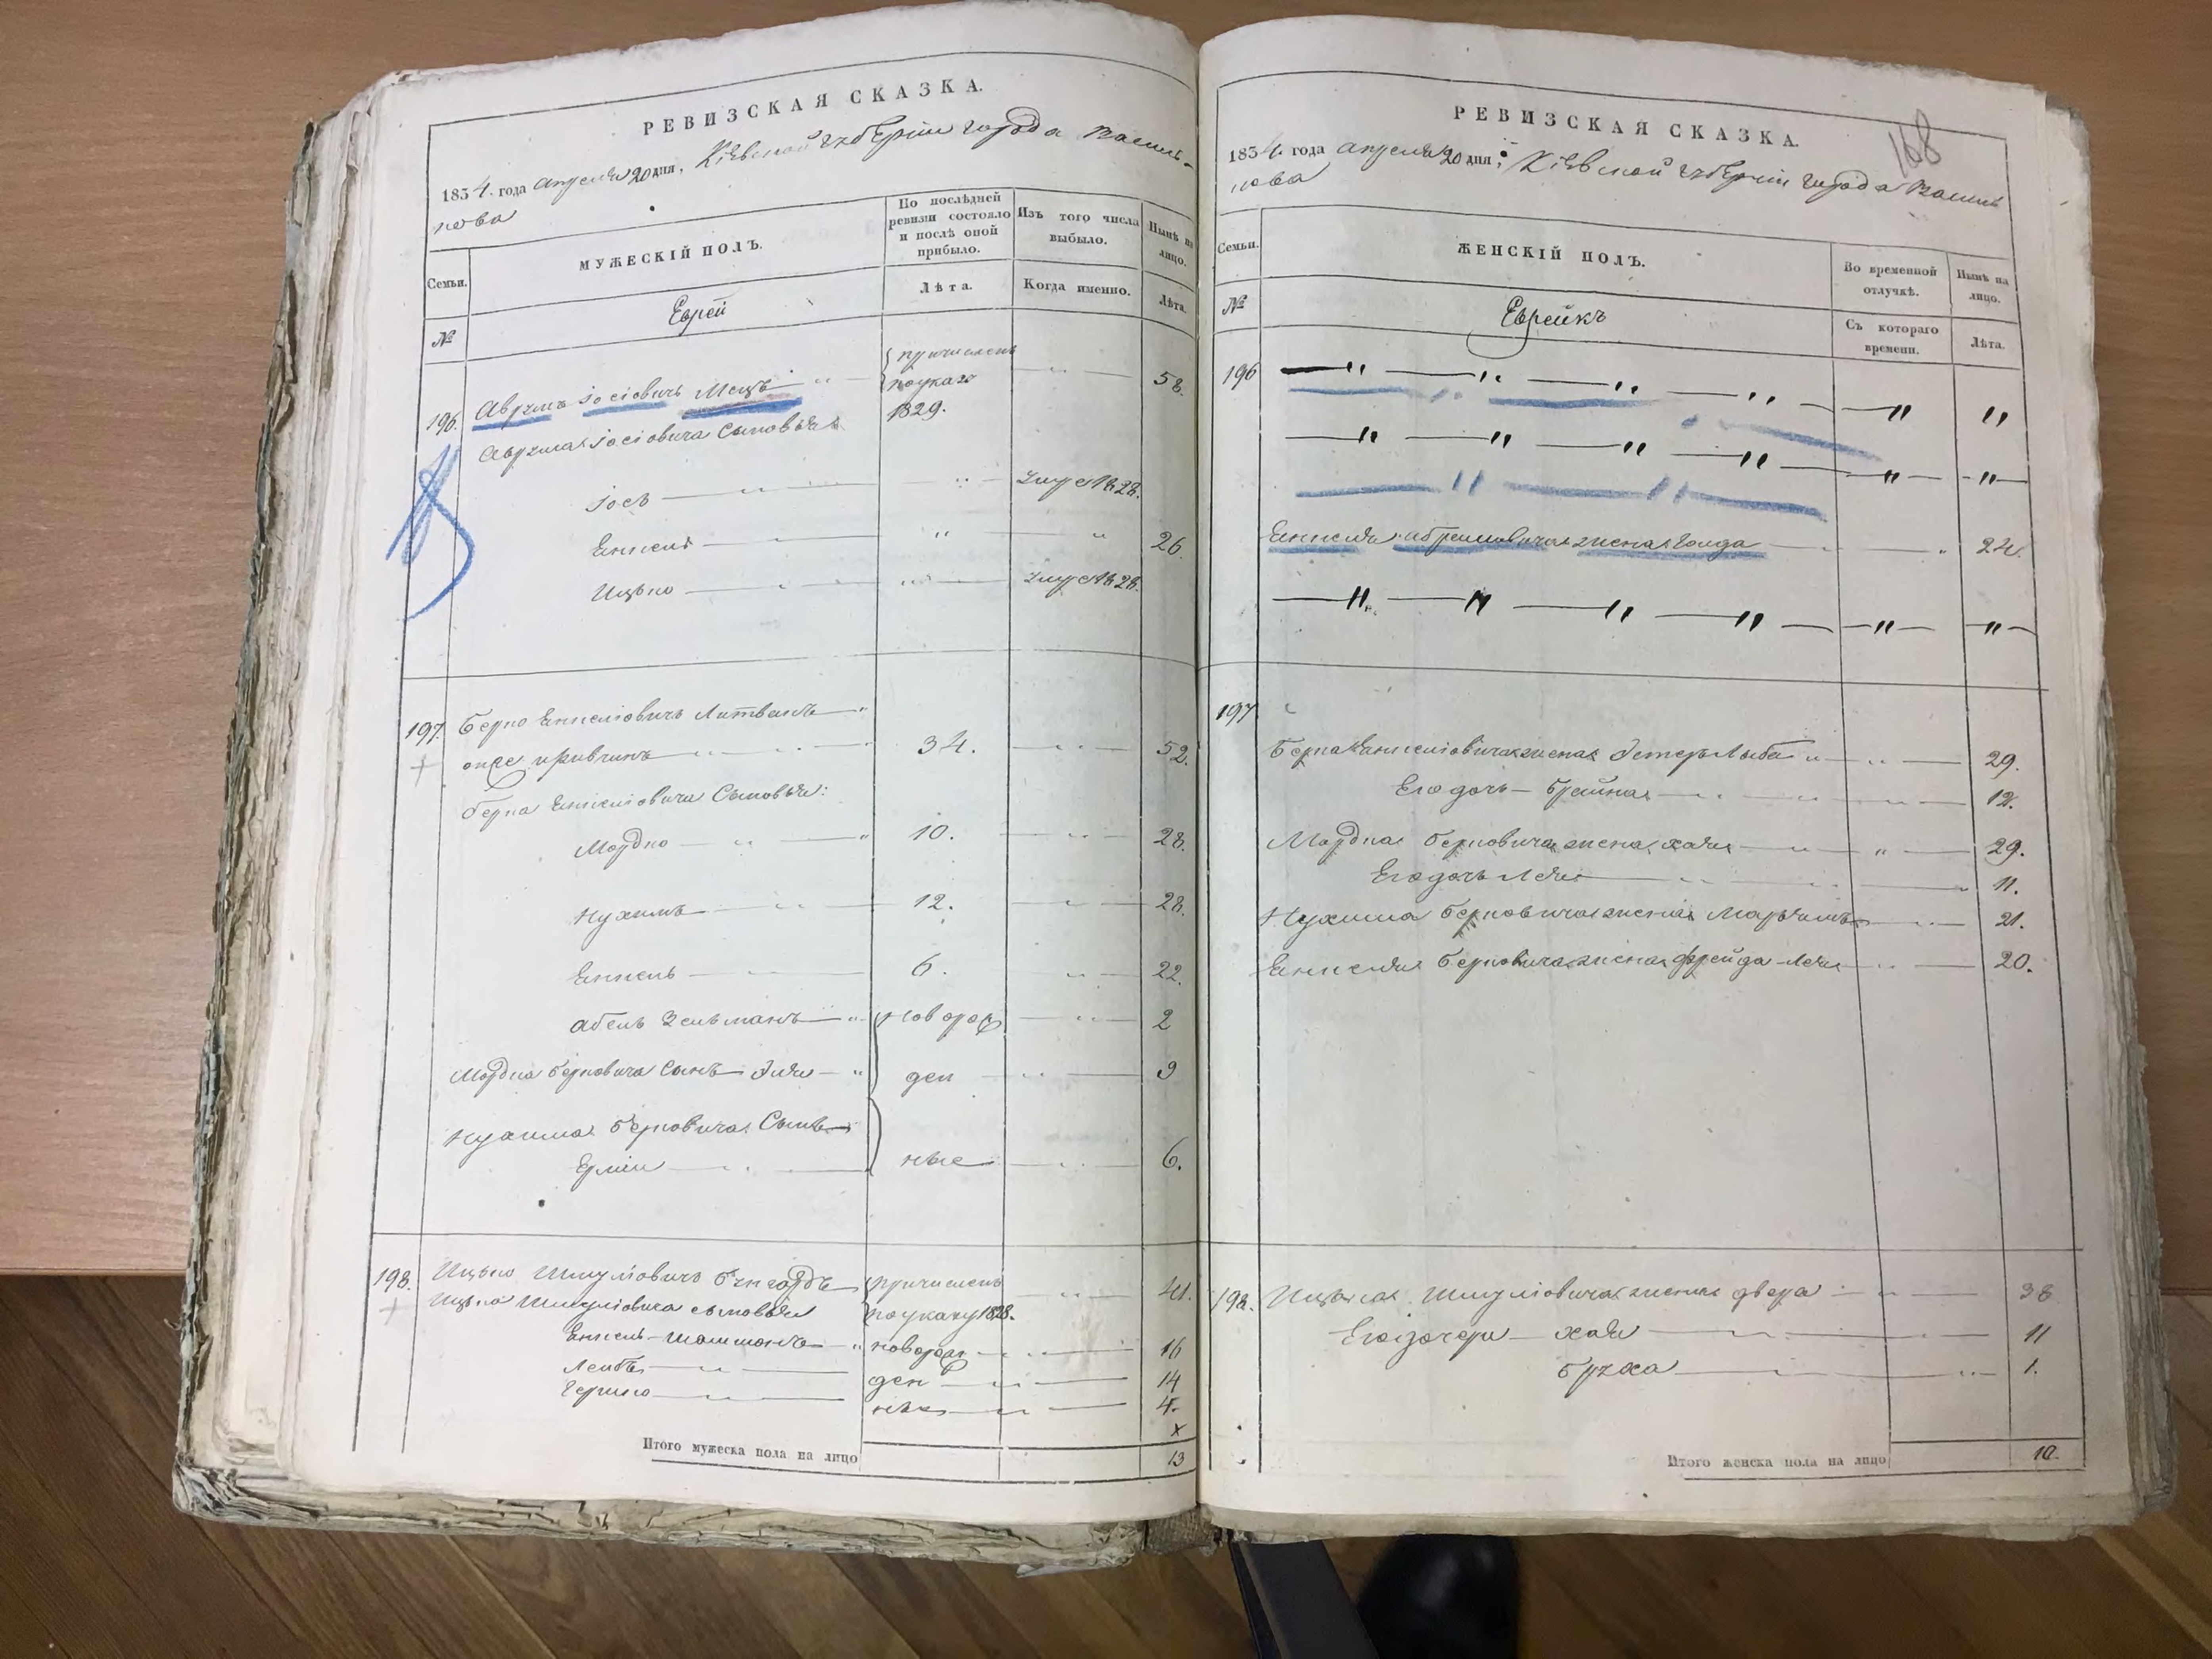 РЕВИЗСКАЯ СКАЗКА.
1834. года апреля 20 дня, Кіевской губерніи города Василь-
кова
Семьи.
МУЖЕСКІЙ ПОЛЪ.
По послѣдней ревизіи состояло и послѣ оной прибыло.
Изъ того числа выбыло.
Нынѣ на лицо.
№
Еврей
Лѣта.
Когда именно.
Лѣта.
196. Аврумъ Іосіовичь Мецъ " причисленъ по указу 1829. " 58.
Аврума Іосіовича Сыновья
Іось " " умре 1828.
Енкель " " 26.
Ицько " " умре 1828.
197. Берко Енкеліовичъ Литвакъ "
онъ же " " 34. " 52.
Берка Енкеліовича Сыновья:
Мордко " " 10. " 28.
Нухимъ " 12. " 28.
Енкель " 6. " 22.
Абель Зельманъ " новорож " 2
Мордка Берковича Сынъ Эля " ден " 9
Нухима Берковича Сынъ
" ные " 6.
198. Ицько Шмуліовичъ причисленъ " 41.
Ицька Шмуліовича сыновья по указу 1828.
Енкель " новорож " 16
Лейба " ден " 14
Гершко " ные " 4.
х
Итого мужеска пола на лицо 13
РЕВИЗСКАЯ СКАЗКА.
168
1834. года апреля 20 дня, Кіевской губерніи города Василь
кова
Семьи.
ЖЕНСКІЙ ПОЛЪ.
Во временной отлучкѣ.
Нынѣ на лицо.
№
Еврейкъ
Съ котораго времени.
Лѣта.
196 " " " " " "
" " " " " "
" "
Енкеля Абрамовича жена Голда " " 24.
" " " " " "
197
Берка Енкеліовича жена Эстеръ Лыба " " 29.
Его дочь Брайна " " " 12.
Мордка Берковича жена Хая " " 29.
Его дочь Лея " " " 11.
Нухима Берковича жена Марьямъ " 21.
Енкеля Берковича жена Фрейда-Лея " 20.
198. Ицька Шмуліовича жена Двера " " 38
Его дочери Хая " " " 11
Бруха " " 1.
Итого женска пола на лицо 10.